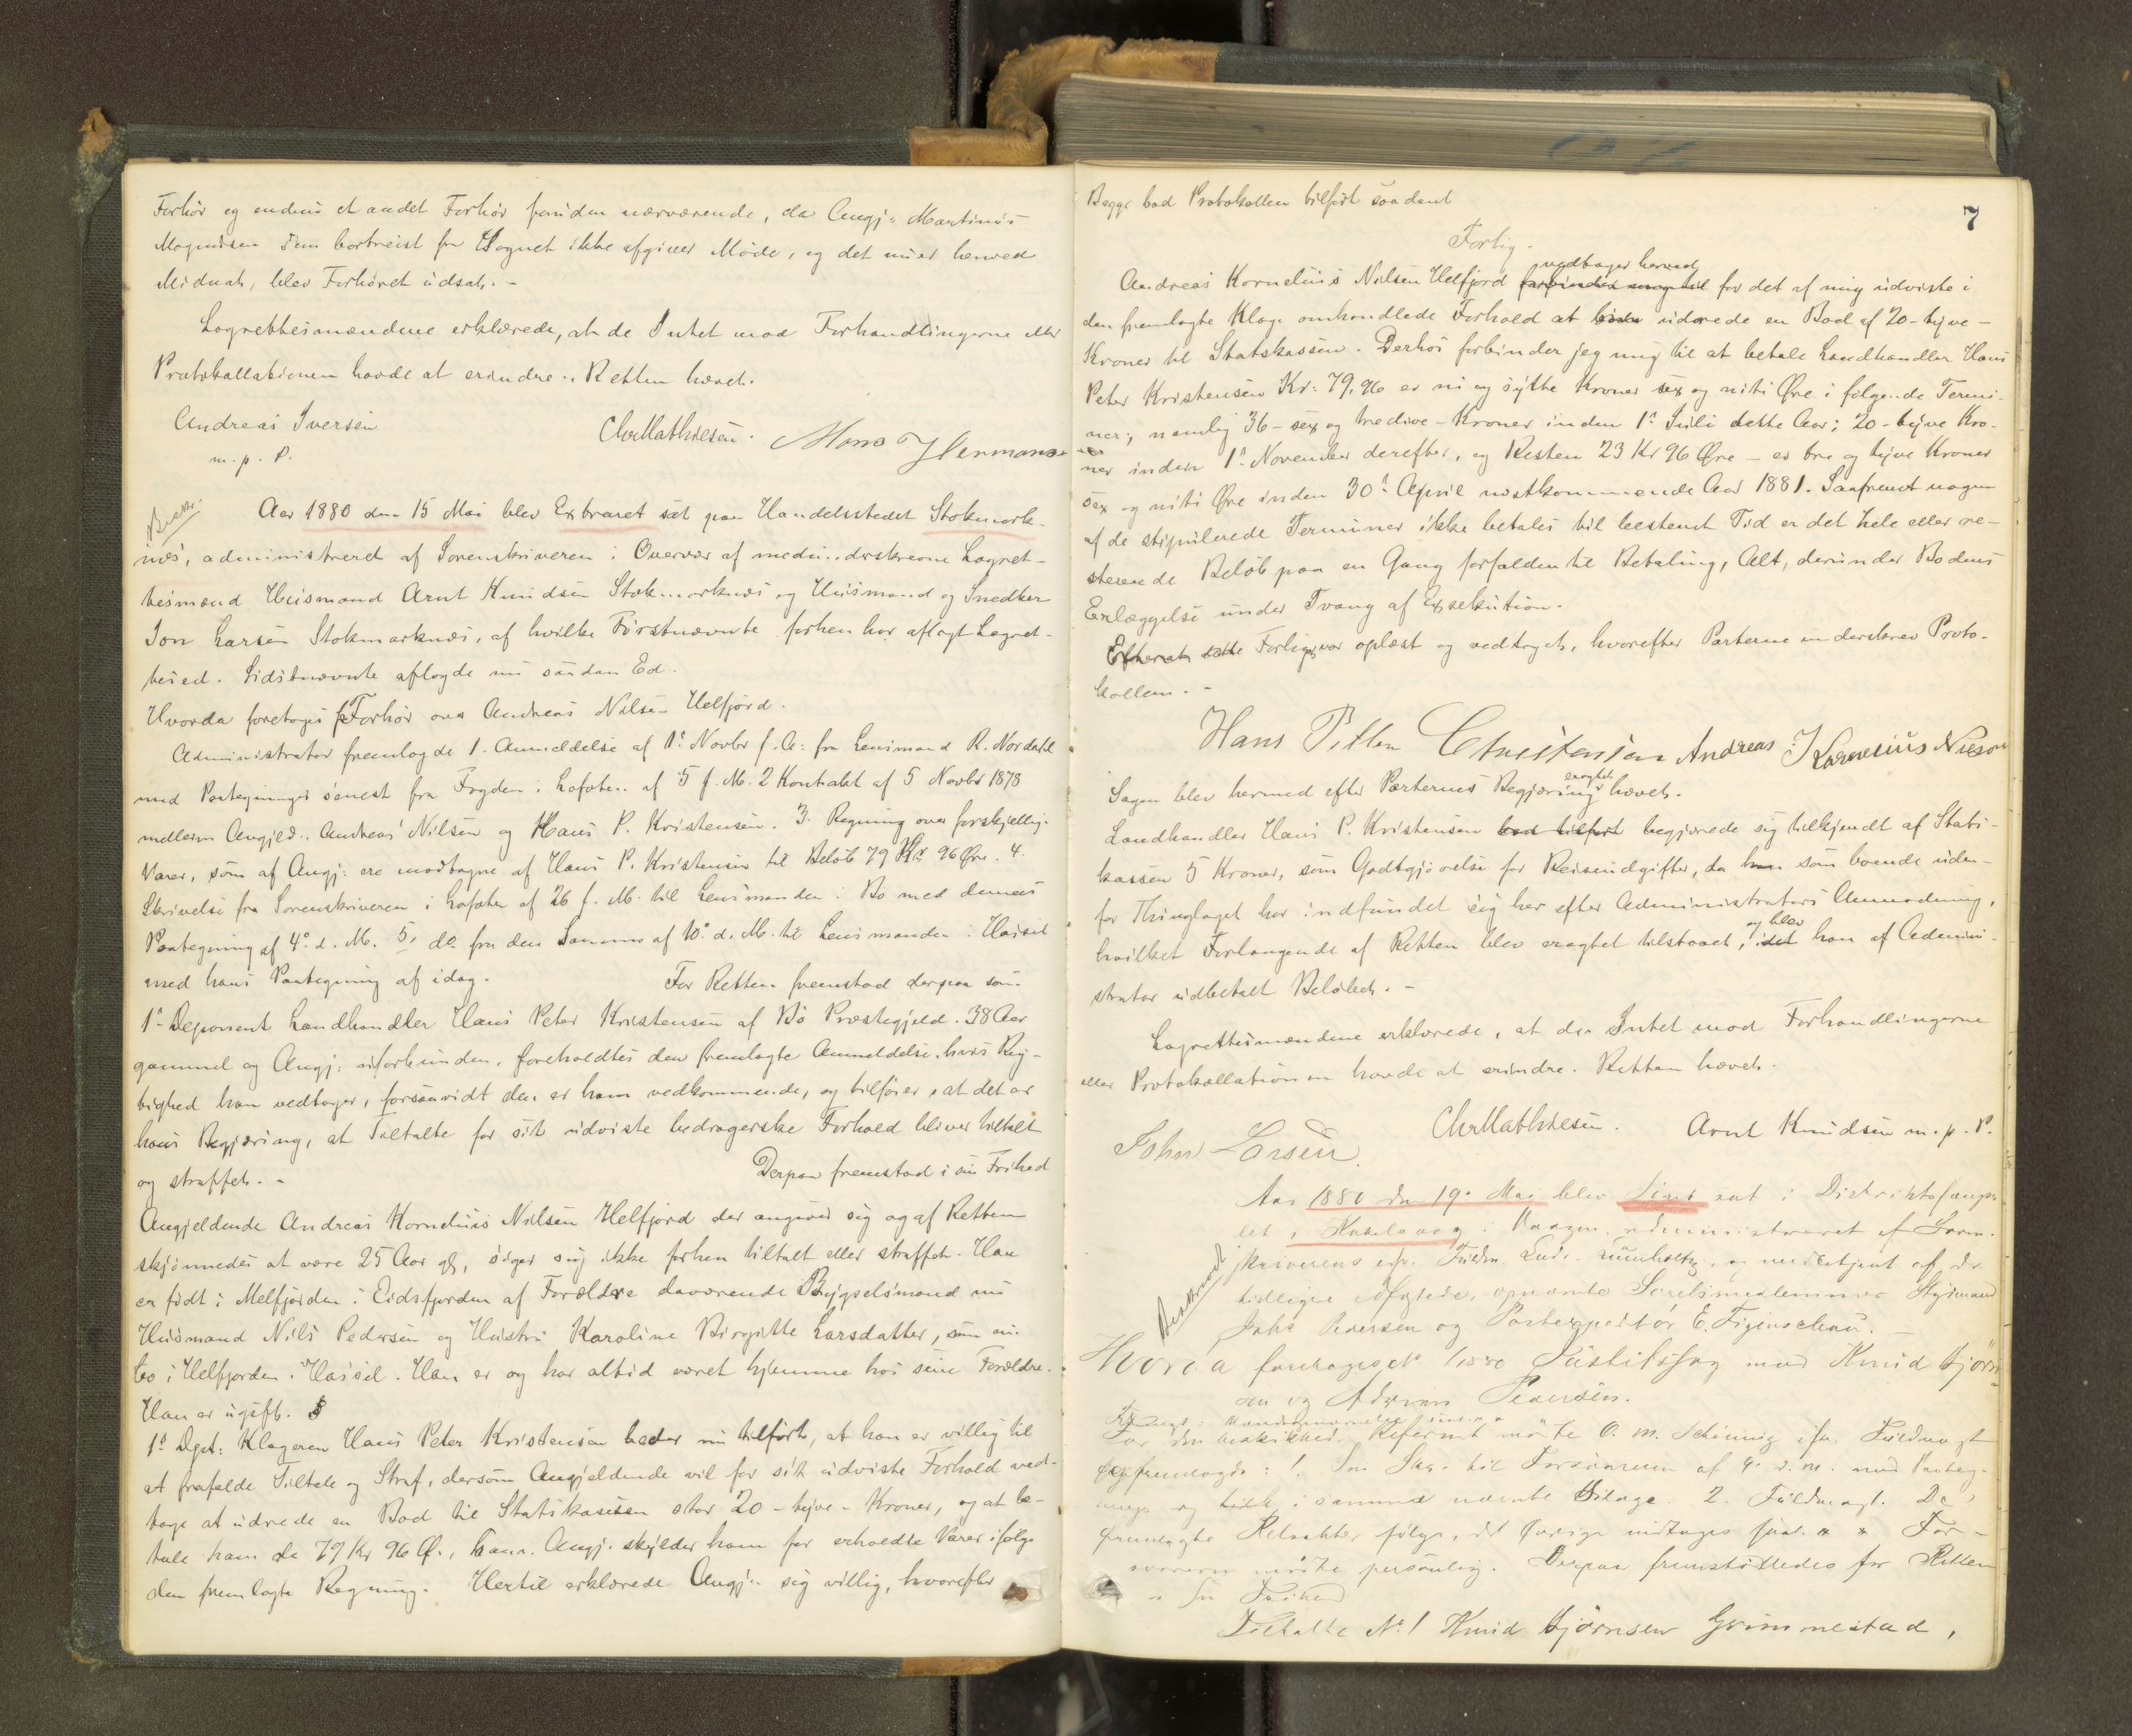 Forhör og endnu et andet Forhör foruden nærværende, da Angj: Martinus
Magnusen som bortreist fra Sognet ikke afgiver Möde, og det nu er henved
Midnat, blev Forhöret udsat. -
Lagrettesmændene erklærede, at de Intet mod Forhandlingerne eller
Protokollationen havde at erindre. Retten hævet.
Andreas Iversen
m. p. P.
Chr Mathiesen. Mons Hermans
Aar 1880 den 15 Mai blev Extraret sat paa Handelsstedet Stokmark-
næs, administreret af Sorenskriveren i Overvær af medunderskrevne Lagret-
tesmænd Huusmand Arnt Knudsen Stokmarknæs og Huusmand og Snedker
Jon Larsen Stokmarknæs, af hvilke Förstnævnte forhen har aflagt Lagret-
tesed. Sidstnævnte aflagde nu saadan Ed.
Hvorda foretoges Forhör over Andreas Nilsen Helfjord.
Administrator fremlagde 1. Anmeldelse af 1ste Novbr f. A: fra Lensmand R. Nordahl
med Paategninger senest fra Fogden i Lofoten af 5 f. M. 2 Kontrakt af 5 Novbr 1878
mellem Angjeld. Andreas Nilsen og Hans P. Kristensen. 3. Regning over forskjellige
Varer, som af Angj: ere modtagne af Hans P. Kristensen til Belöb 79 Kr 96 Öre. 4.
Skrivelse fra Sorenskriveren i Lofoten af 26 f. M. til Lensmanden i Bö med dennes
Paategning af 4de d. M. 5, do fra den Samme af 10de d. M. til Lensmanden i Hassel
med hans Paategning af idag. For Retten fremstod derpaa som
1ste Deponent Landhandler Hans Peter Kristensen af Bö Præstegjeld. 38 Aar
gammel og Angj: uforbunden. foreholdtes den fremlagte Anmeldelse, hvis Rig-
tighed han vedtager, forsaavidt den er ham vedkommende, og tilföier, at det er
hans Begjæring, at Tiltalte for sit udviste bedragerske Forhold bliver tiltalt
og straffet. - Derpaa fremstod i sin Frihed
Angjeldende Andreas Kornelius Nilsen Helfjord der angiver sig og af Retten
skjönnedes at være 25 Aar gl, siger sig ikke forhen tiltalt eller straffet. Han
er födt i Melfjorden i Eidsfjorden af Forældre daværende Bygselsmand nu
Huusmand Nils Pedersen og Hustru Karoline Birgitte Larsdatter, som nu
bo i Helfjorden i Hassel. Han er og har altid været hjemme hos sine Forældre.
Han er ugift.
1ste Dpt: Klageren Hans Peter Kristensen beder nu tilfört, at han er villig til
at frafalde Tiltale og Straf, dersom Angjeldende vil for sit udviste Forhold ved-
tage at udrede en Bod til Statskassen stor 20 - tyve - Kroner, og at be-
tale ham de 79 Kr 96 Ö., som Angj. skylder ham for erholdte Varer ifölge
den fremlagte Regning. Hertil erklærede Angj: sig villig, hvorefter
7
Begge bad Protokollen tilfört saadent
Forlig.
vedtager herved
Andreas Kornelius Nilsen Helfjord forbinder mig til for det af mig udviste i
den fremlagte Klage omhandlede Forhold at udrede en Bod af 20 - tyve -
Kroner til Statskassen. Derhos forbinder jeg mig til at betale Landhandler Hans
Peter Kristensen Kr: 79,96 er ni og sytte Kroner sex og niti Öre i fölgende Termi-
ner; nemlig 36 - sex og tredive - Kroner inden 1ste Juli dette Aar; 20 - tyve Kro-
ner inden 1ste November derefter, og Resten 23 Kr 96 Öre - er tre og tyve Kroner
sex og niti Öre inden 30te April næstkommende Aar 1881. Saafremt nogen
af de stipulerede Terminer ikke betales til bestemt Tid er det hele eller re-
sterende Belöb paa en Gang forfalden til Betaling, Alt, derunder Bodens
Erlæggelse under Tvang af Exsekution.
Efterat Forliget var oplæst og vedtaget, hvorefter Parterne underskrev Proto-
kollen. -
Hans Petter Christensen Andreas Kornelius Nilson
eragtet
Sagen blev hermed efter Parternes Begjæring hævet.
Landhandler Hans P. Kristensen bad tilfört begjærede sig tilkjendt af Stats-
kassen 5 Kroner, som Godtgjörelse for Reiseudgifter, da han som boende uden-
for Thinglaget har indfundet sig her efter Administrators Anmodning,
og blev
hvilket Forlangende af Retten blev eragtet tilstaaet, idet han af Admini-
strator udbetalt Belöbet. -
Lagrettesmændene erklærede, at de Intet mod Forhandlingerne
eller Protokollationen havde at erindre. Retten hævet.
Chr Mathiesen. Arnt Knudsen m. p. P.
John Larsen.
Aar 1880 den 19de Mai blev sat i Distriktsfængs-
let i Kabelvaag i Vaagen administreret af Soren-
skriverens og medbetjent af de
tidligere opnævnte Styrmand
Pedersen og Postexpeditör E. Figenschau.
Hvorda foretoges 1/1880 Justitssag mod Knud Björn-
sen og Pedersen.
mötte O. M. Schöning Fuldmagt
og fremlagde: 1. til af 4. d. M. med Paateg-
ning og i samme nævnte Bilage. 2. Fuldmagt. De
fremlagte Retsakter fölge, det For-
svareren mötte personlig. Derpaa fremstilledes for Retten
i sin Frihed
Tiltalte No 1 Knud Björnsen Grimnestad,